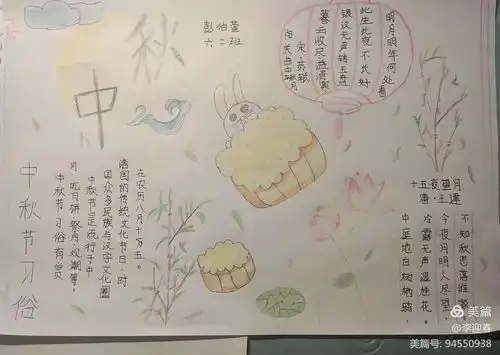 秋
中
彭怡萱
六二班
阳关曲中秋月
宋 苏轼
暮云收尽溢清寒
银汉无声转玉盘
此生此夜不长好
明月明年何处看
十五夜望月
唐·王建
中庭地白树栖鸦,
冷露无声湿桂花。
今夜月明人尽望,
不知秋思落谁家。
中秋节习俗
中秋节习俗有赏
月、吃月饼、祭月、观潮等。
中秋节是流行于中
国众多民族与汉字文化圈
诸国的传统文化节日,时
在农历八月十五。
美篇
@李迎春
美篇号: 94550938